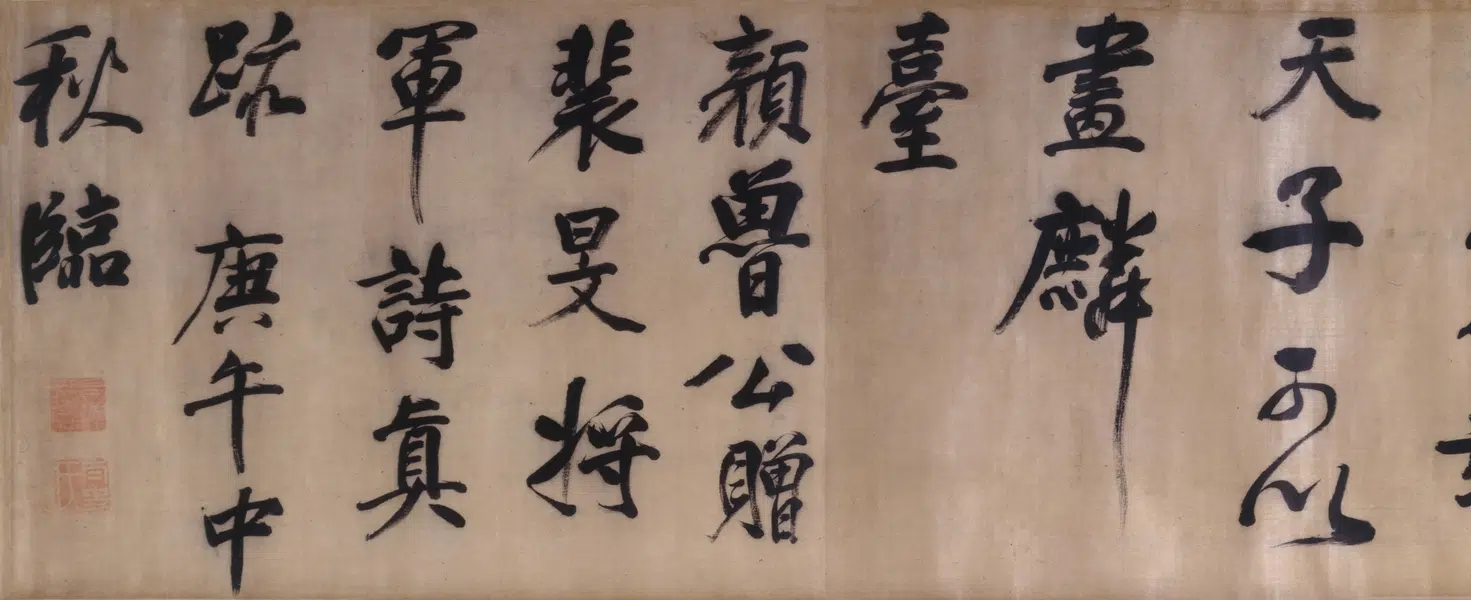 天子可以
畫麟
臺
顏魯公贈
裴旻将
軍詩真
跡庚午中
秋臨